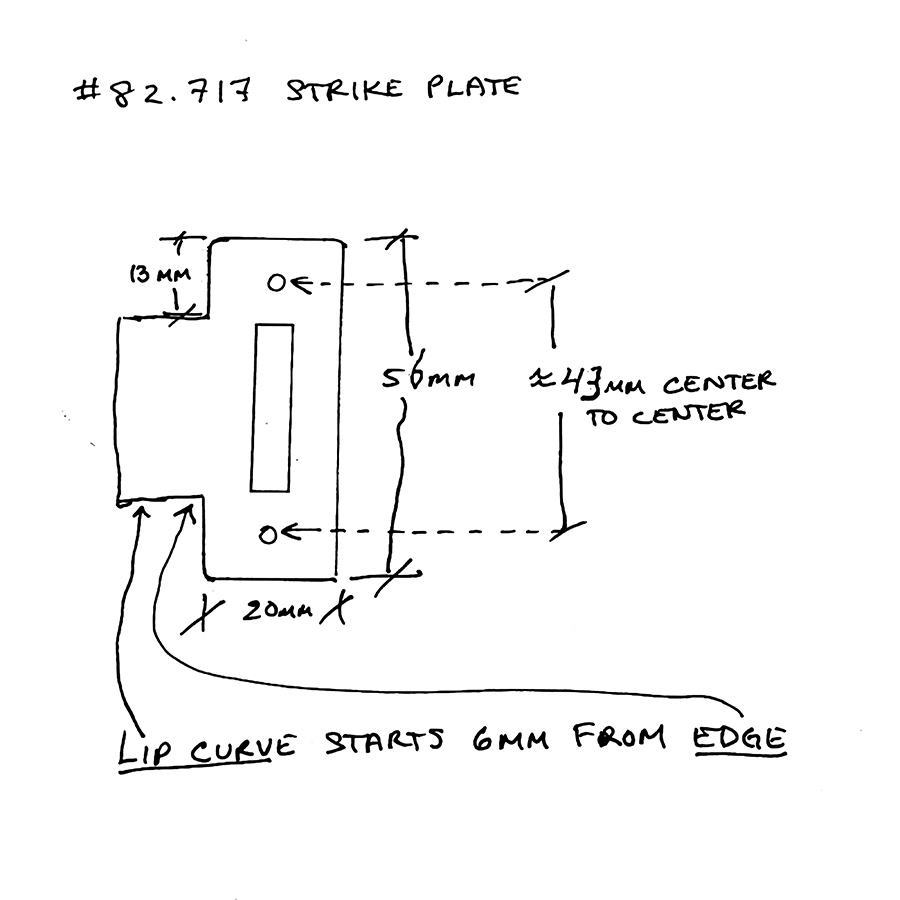 #82.717 STRIKE PLATE
13 MM
56mm
≈43MM CENTER
TO CENTER
20MM
LIP CURVE STARTS 6MM FROM EDGE